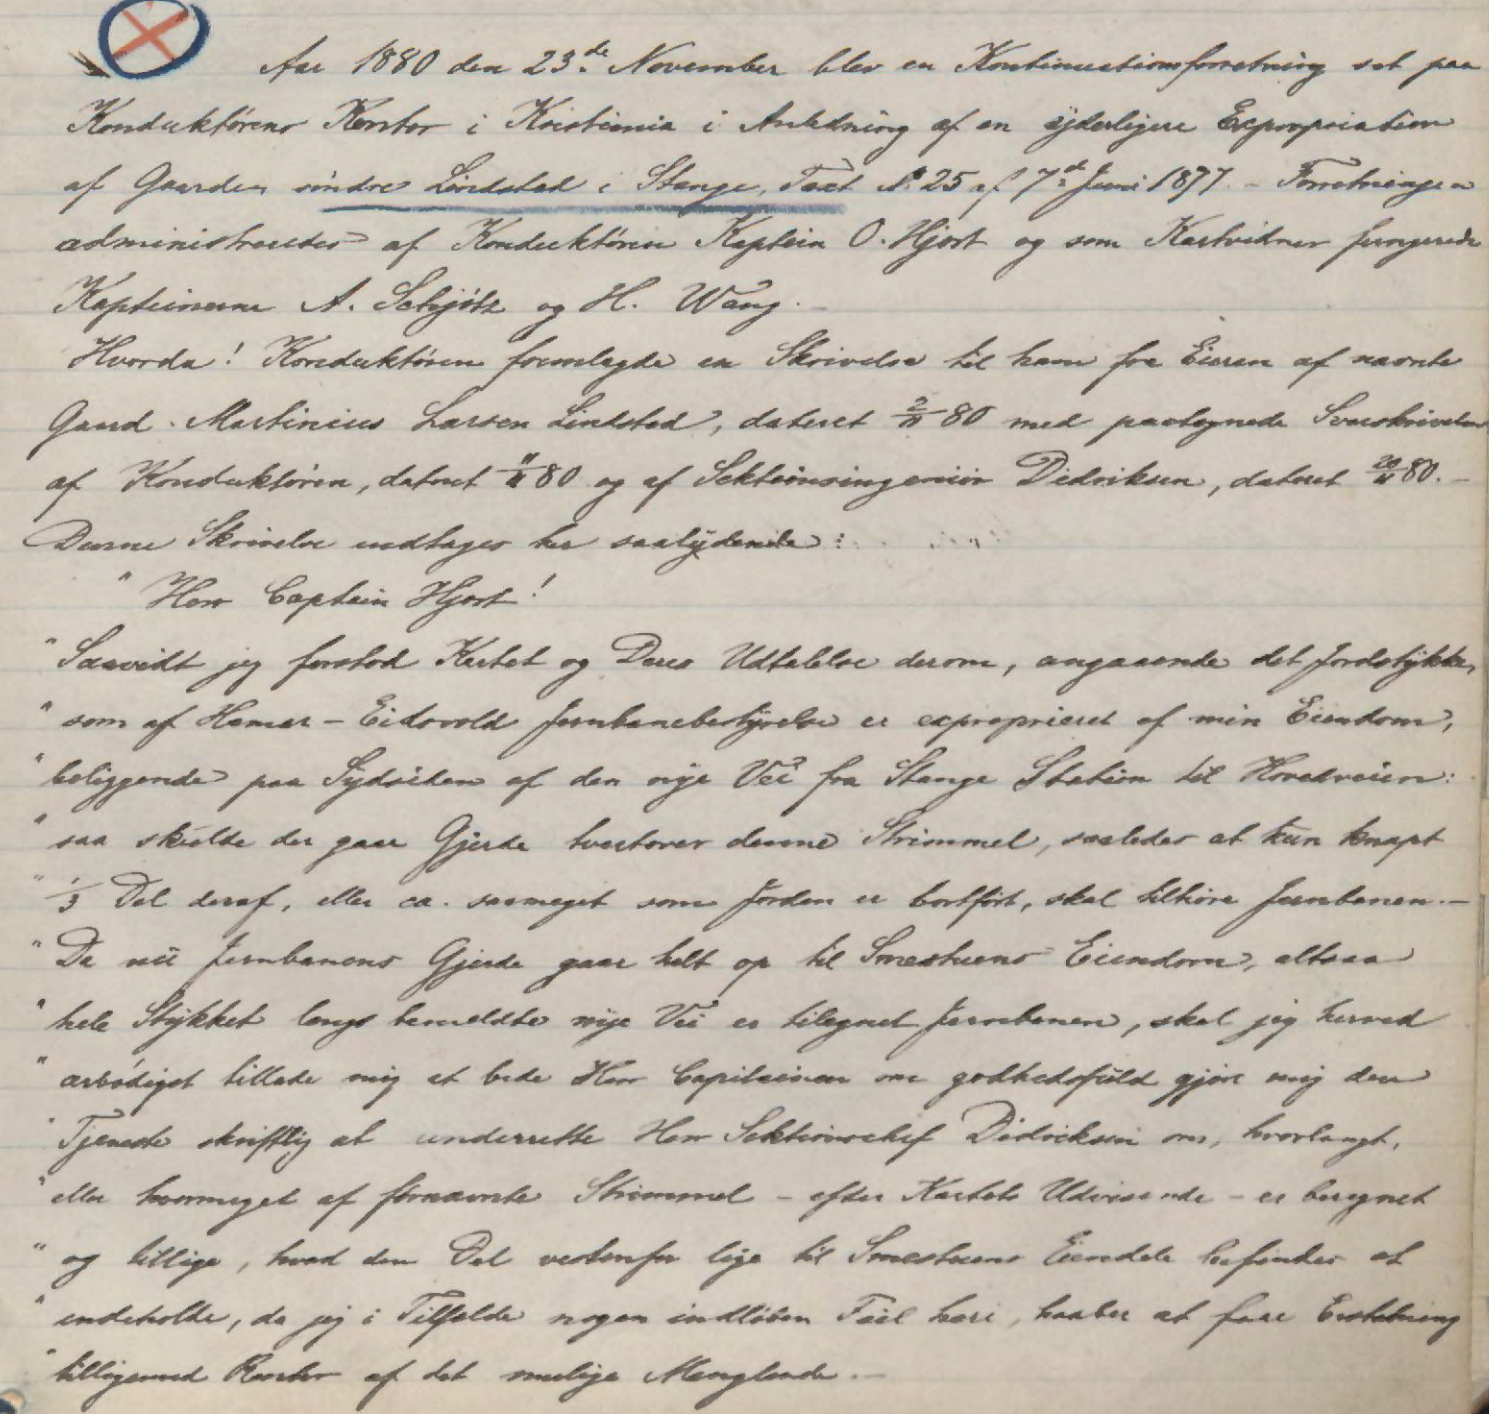 Aar 1880 den 23de November blev en Kontinuationsforretning sat paa
Konduktørens Kontor i Kristiania i Anledning af en yderligere Expropriation
af Gaarden søndre Lindstad i Stange, Taxt № 25 af 7de Juni 1877. – Forretningen
administreredes af Konduktøren Kaptein O. Hjort og som Kartvidner fungerede
Kapteinerne A. Schjøtz og H. Wang. –
Hvorda! Konduktøren fremlagde en Skrivelse til ham fra Eieren af nævnte
Gaard Martinius Larsen Lindstad, dateret 2/11 80 med paategnede Svarskrivelser
af Konduktøren, dateret 11/11 80 og af Sektionsingeniør Didriksen, dateret 20/11 80. –
Denne Skrivelse indtages her saalydende:
" Herr Captein Hjort!
" Saavidt jeg forstod Kartet og Deres Udtalelse derom, angaaende det Jordstykke,
" som af Hamar – Eidsvold Jernbanebestyrelse er exproprieret af min Eiendom,
" beliggende paa Sydsiden af den nye Vei fra Stange Station til Hovedveien:
" saa skulde der gaar Gjerde tvertover denne Strimmel, saaledes at kun knapt
" 1/3 Del deraf, eller ca. saameget som Jorden er bortført, skal tilhøre Jernbanen. –
" Da nu Jernbanens Gjerde gaar helt op til Smestuens Eiendom, altsaa
" hele Stykket langs bemeldte nye Vei er tilegnet Jernbanen, skal jeg herved
" ærbødigst tillade mig at bede Herr Capitainen om godhedsfuld gjøre mig den
" Tjeneste skriftlig at underrette Herr Sektionschef Didriksen om, hvorlangt,
" eller hvormeget af fornævnte Strimmel – efter Kartets Udvisende – er beregnet
" og tillige, hvad den Del vestenfor lige til Smestuens Eiendele befindes at
" indeholde, da jeg i Tilfælde nogen indløben Feil heri, haaber at faae Erstatning
" tilligemed Renter af det mulige Manglende. –